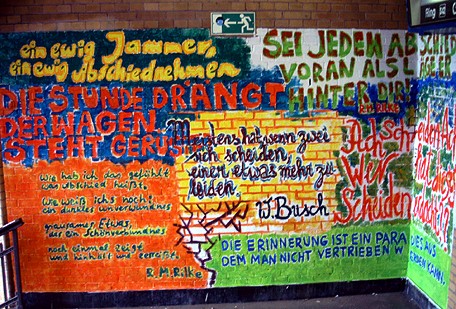 Ring
ein ewig Jammer,
ein ewig Abschiednehmen
SEI JEDEM ABSCHIED
VORAN ALS LÄGE ER
HINTER DIR
R.M. RILKE
DIE STUNDE DRÄNGT
DER WAGEN
STEHT GERÜS
Meistens hat, wenn zwei
sich scheiden,
einer etwas mehr zu
leiden.
W. Busch
Ach
Wer
Scheiden
Wie hab ich das gefühlt
was Abschied heißt.
Wie weiß ichs noch:
ein dunkles unverwundnes
grausames Etwas,
das ein Schönverbundnes
noch einmal zeigt
und hinhält und zerreißt.
R.M. Rilke
DIE ERINNERUNG IST EIN PARA
DIES AUS
DEM MAN NICHT VERTRIEBEN W
ERDEN KANN.